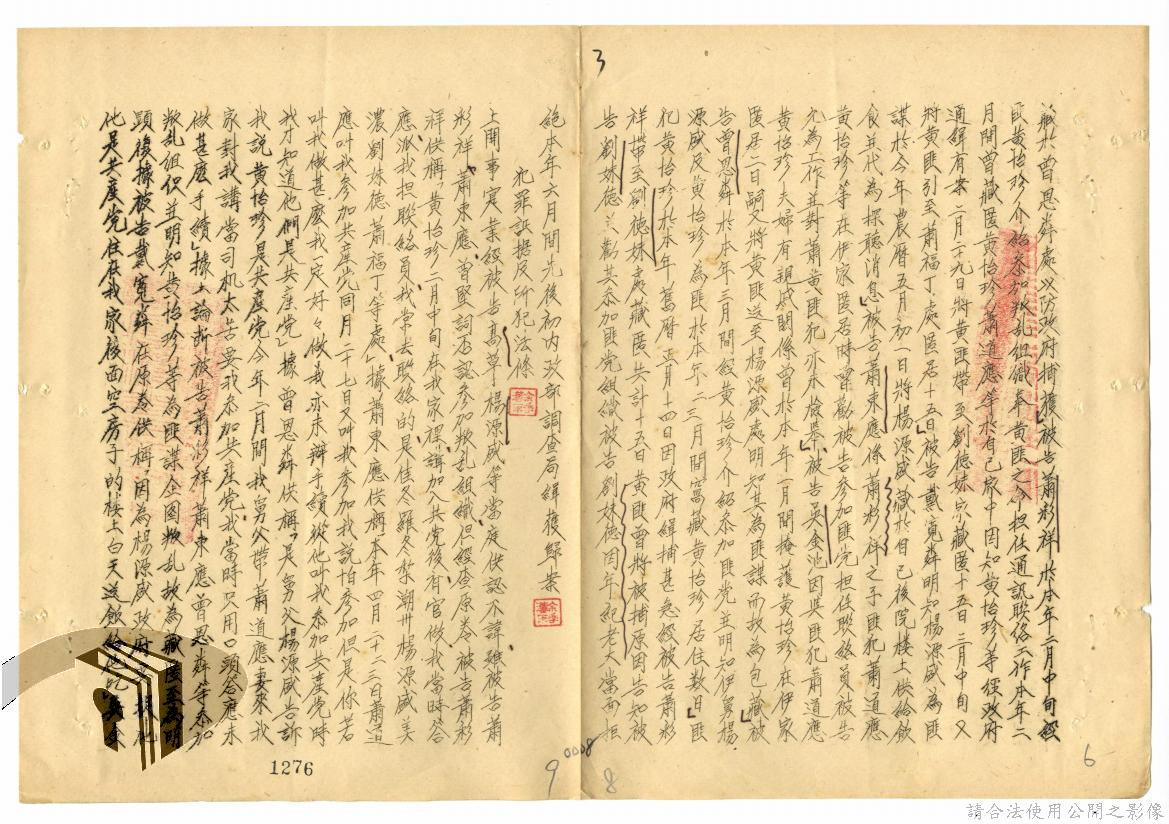 3
藏於曾恩粦處以防政府捕獲被告蕭彩祥於本年二月中旬經
匪黃怡珍介紹参加叛乱組織奉黃匪之令担任通訊联絡工作本年二
月間曾藏匿黃怡珍蕭道應等於自已家中因知黃怡珍等經政府
通緝有案二月二十九日將黃匪帶至劉德妹家藏匿十五日三月中旬又
將黃匪引至蕭福丁處匿居十五日被告戴寬粦明知楊源盛為匪
諜於今年農曆五月初一日將楊源盛藏於自已後院楼上供給飲
食並代為探聽消息被告蕭東應係蕭彩祥之子匪犯蕭道應
黃怡珍等在伊家匿居時曾勸被告参加匪党担任联絡員被告
允為工作並對蕭黃匪犯亦未檢举被告吳金池因與匪犯蕭道應
黃怡珍夫婦有親戚関係曾於本年一月間掩護黃怡珍在伊家
匿居二日嗣又將黃匪送至楊源盛處明知其為匪諜而故為包藏被
告曾恩粦於本年三月間經黃怡珍介紹参加匪党並明知伊舅楊
源盛及黃怡珍為匪於本年二三月間窩藏黃怡珍居住数日匪
犯黃怡珍於本年舊曆正月十四日因政府緝捕甚急經被告蕭彩
祥帶至劉德妹處藏匿共計十五日黃匪曾將被捕原因告知被
告劉妹德並勸其参加匪党組織被告劉妹德因年紀老大當面拒
絕本年六月間先後初內政部調查局緝獲歸案
犯罪証据及所犯法條
上開事实業經被告高草楊源盛等當庭供認不諱雖被告蕭
彩祥蕭東應曾堅詞否認参加叛乱組織但經查原卷被告蕭彩
祥供稱「黃怡珍二月中旬在我家裡誆加入共党後有官做我當時答
應派我担联絡員我常去联絡的是佳冬羅冬荣潮州楊源盛美
濃劉妹德蕭福丁等處」據蕭東應供稱「本年四月二十三日蕭道
應叫我参加共産党同月二十七日又叫我参加我説怕参加但是你若
叫我做甚麽我一定好々做我亦未辦手續從他叫我参加共産党時
我才知道他們是共産党」據曾恩粦供稱「是舅父楊源盛告訴
我説黃怡珍是共産党今年二月間我舅父帶蕭道應妻來我
家對我講當司机太苦要我参加共産党我當時只用口頭答應未
做甚麽手續」據上論断被告蕭彩祥蕭東應曾恩粦等参加
叛乱組织並明知黃怡珍等為匪諜企图叛乱故為藏匿至為明
顕復據被告戴寬粦在原卷供稱因為楊源盛政府
此是共産党住在我家後面空房子的楼上白天送飯給他吃
1276
0008
9
8
6
請合法使用公開之影像